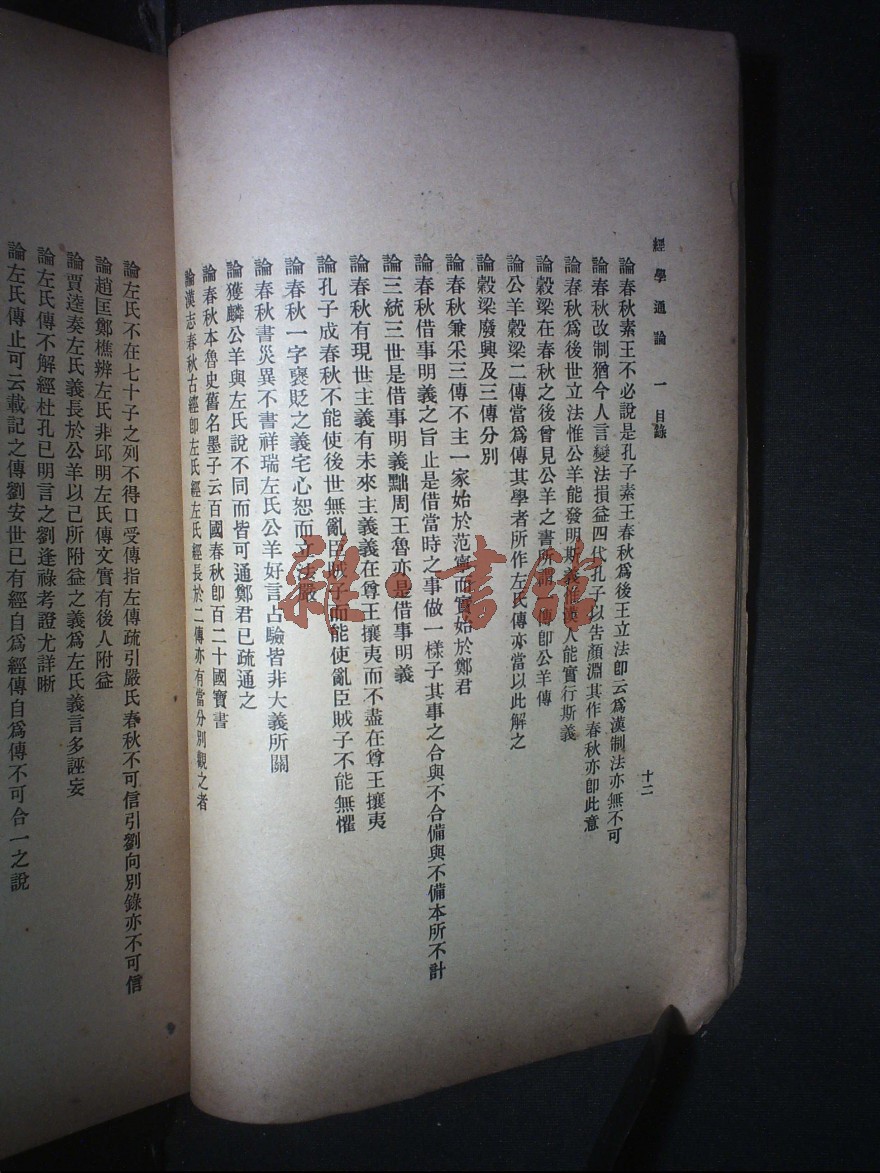 經學通論 一 目錄
十二
論春秋素王不必說是孔子素王春秋爲後王立法卽云爲漢制法亦無不可
論春秋改制猶今人言變法損益四代孔子以告顏淵其作春秋亦卽此意
論春秋爲後世立法惟公羊能發明斯義惟漢人能實行斯義
論穀梁在春秋之後曾見公羊之書所謂一傳卽公羊傳
論公羊穀梁二傳當爲傳其學者所作左氏傳亦當以此解之
論穀梁廢興及三傳分別
論春秋兼采三傳不主一家始於范甯而實始於鄭君
論春秋借事明義之旨止是借當時之事做一樣子其事之合與不合備與不備本所不計
論三統三世是借事明義黜周王魯亦是借事明義
論春秋有現世主義有未來主義義在尊王攘夷而不盡在尊王攘夷
論孔子成春秋不能使後世無亂臣賊子而能使亂臣賊子不能無懼
論春秋一字襃貶之義宅心恕而立法嚴
論春秋書災異不書祥瑞左氏公羊好言占驗皆非大義所關
論獲麟公羊與左氏說不同而皆可通鄭君已疏通之
論春秋本魯史舊名墨子云百國春秋卽百二十國寶書
論漢志春秋古經卽左氏經左氏經長於二傳亦有當分別觀之者
論左氏不在七十子之列不得口受傳指左傳疏引嚴氏春秋不可信引劉向別錄亦不可信
論趙匡鄭樵辨左氏非邱明左氏傳文實有後人附益
論賈逵奏左氏義長於公羊以己所附益之義爲左氏義言多誣妄
論左氏傳不解經杜孔已明言之劉逢祿考證尤詳晰
論左氏傳止可云載記之傳劉安世已有經自爲經傳自爲傳不可合一之說
雜·書館